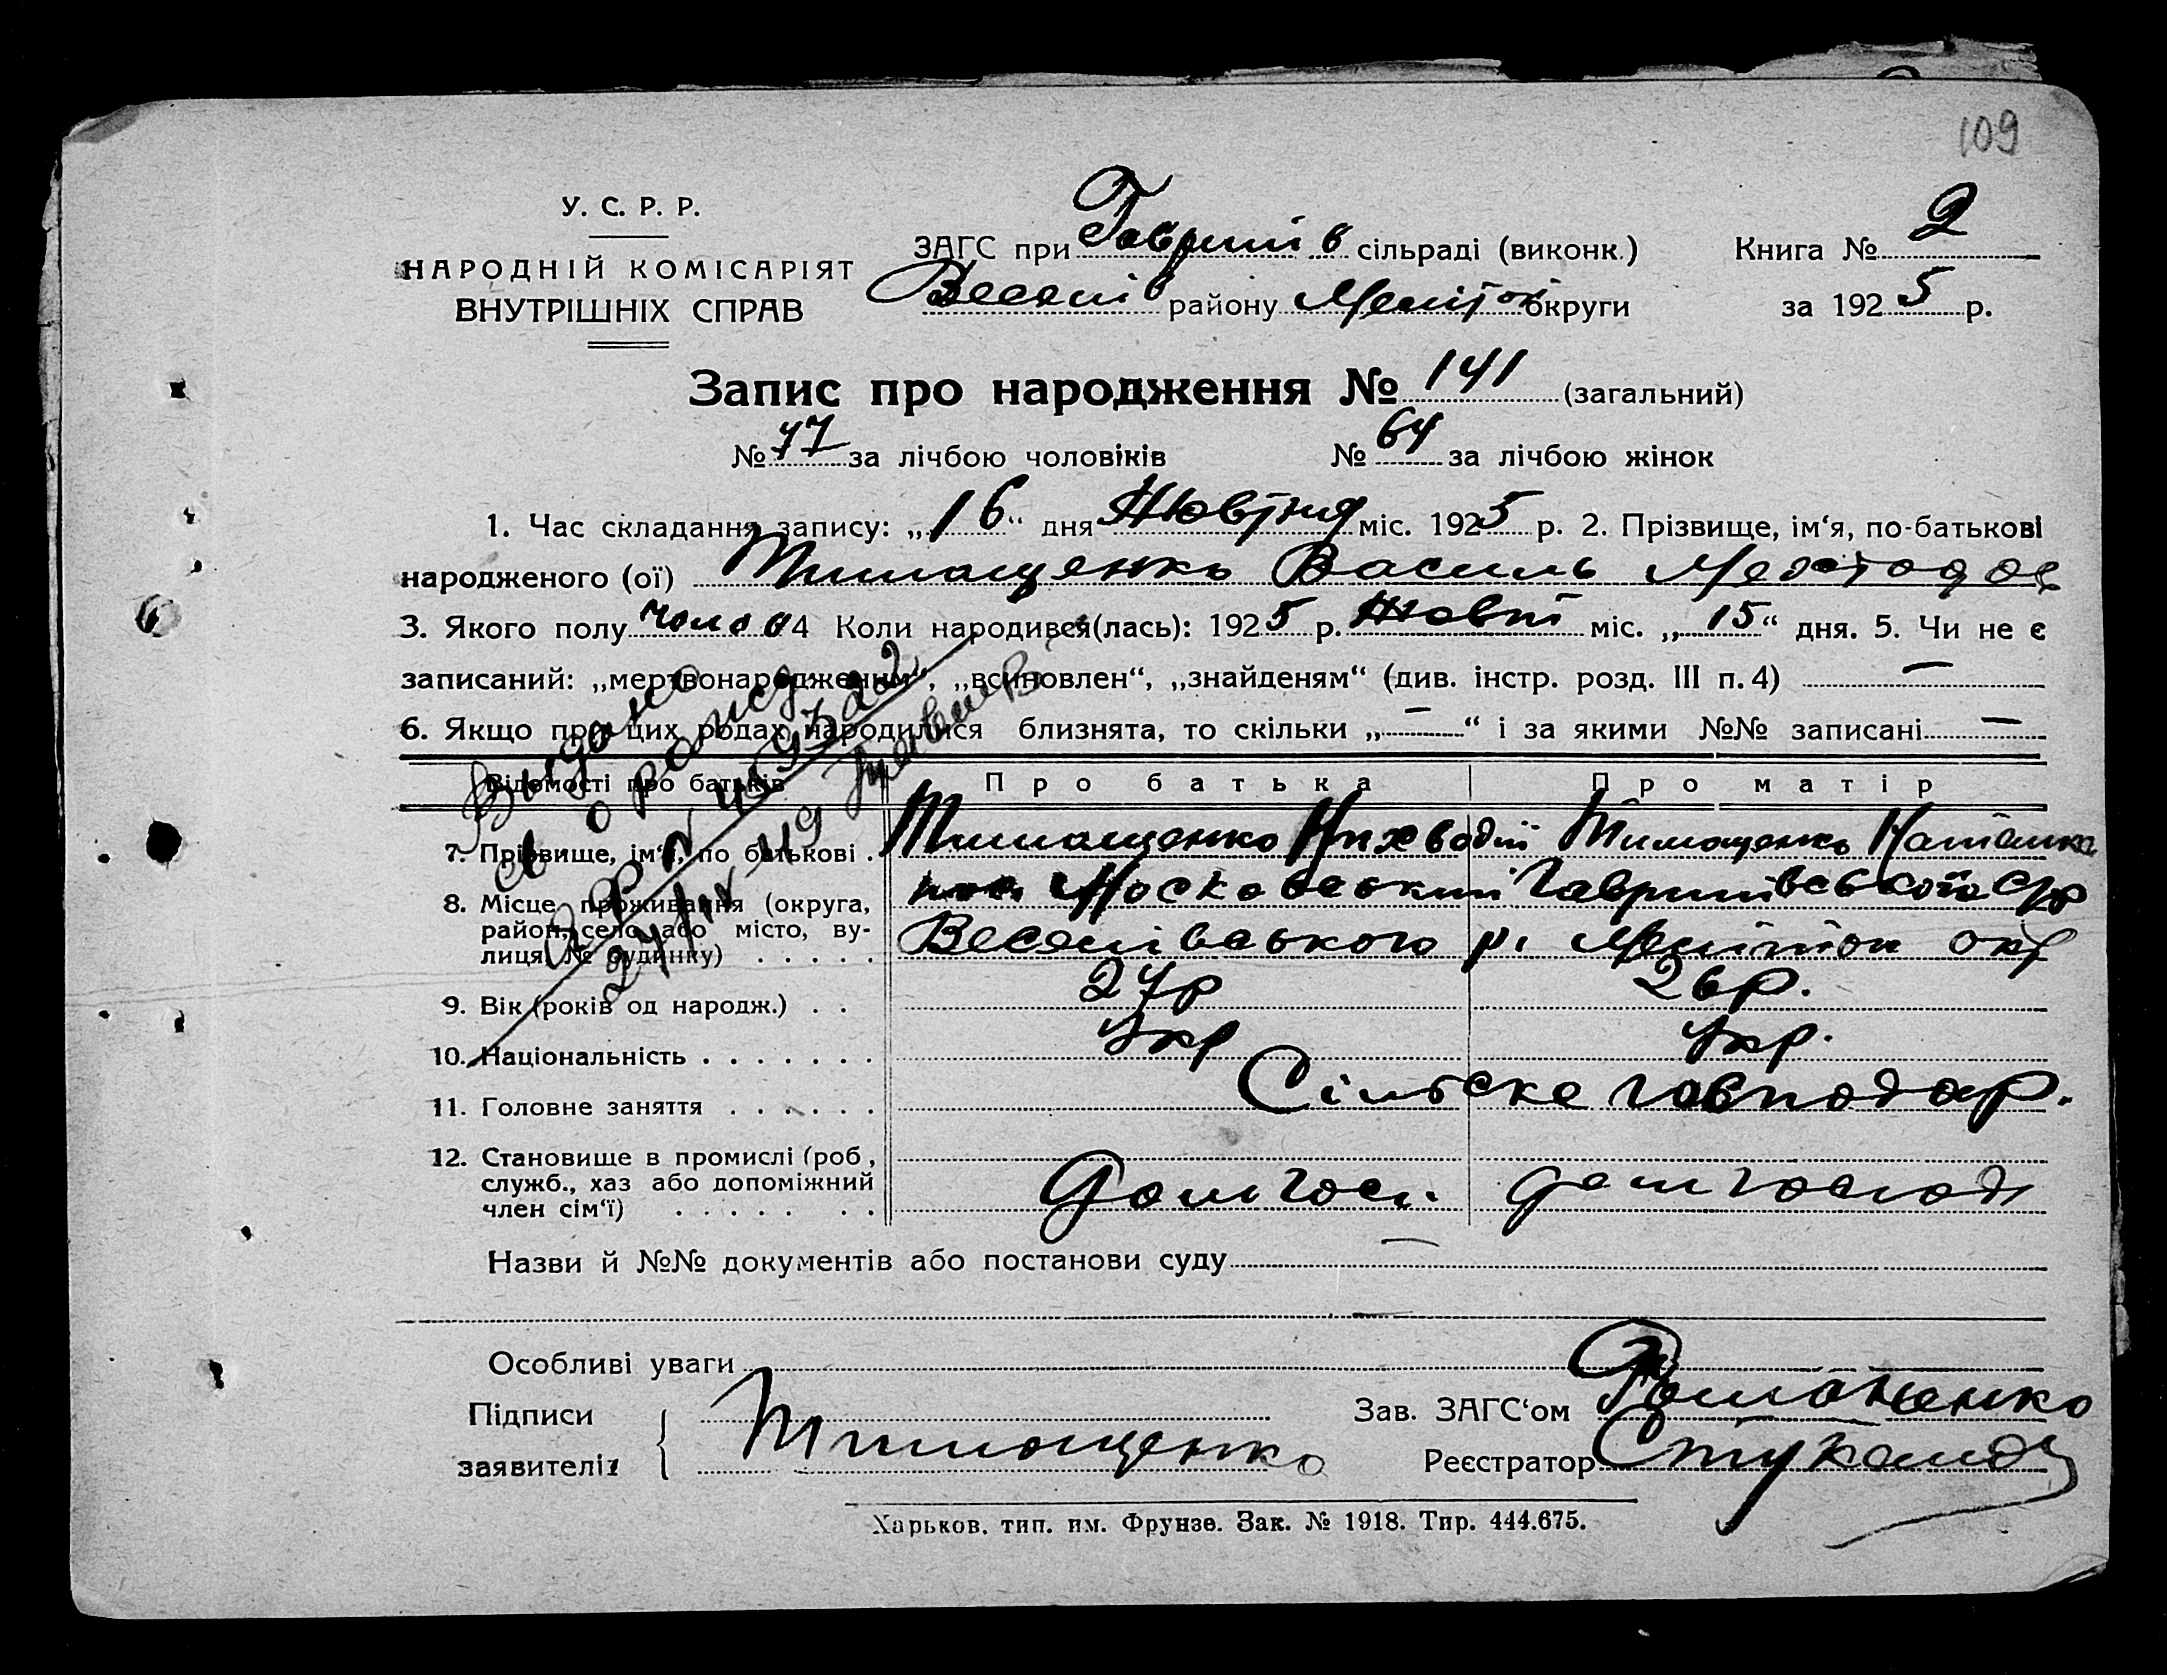 109
У. С. Р. Р.
НАРОДНІЙ КОМІСАРІЯТ
ВНУТРІШНІХ СПРАВ
ЗАГС при Гаврилів сільраді (виконк.)
Веселів району Меліт ок округи
Книга № 2
за 1925 р.
Запис про народження № 141 (загальний)
№ 77 за лічбою чоловіків № 64 за лічбою жінок
1. Час складання запису: „16“ дня Жовтня міс. 1925 р. 2. Прізвище, ім‘я, по-батькові
народженого (ої) Тимощенко Василь
3. Якого полу чолов 4 Коли народився(лась): 1925 р. Жовт міс. „15“ дня. 5. Чи не є
записаний: „мертвонародженим“, „всиновлен“, „знайденям“ (див. інстр. розд. III п. 4) —
6. Якщо при цих родах народилися близнята, то скільки „—“ і за якими №№ записані —
Выдано
Відомості про батьків Про батька Про матір
7. Прізвище, ім‘я, по батькові . Тимощенко Тимощенко
8. Місце проживання (округа, Московський Гаврилівської с/р
район, село або місто, ву-
лиця № будинку) . . . . . Веселівського р. Меліттоп окр
9. Вік (років од народж.) . . 27р 26р.
10. Національність . . . . . . . Укр Укр.
11. Головне заняття . . . . . . Сільске господар.
12. Становище в промислі (роб.,
служб., хаз або допоміжний
член сім‘ї) . . . . . . . Дом госп. дом господ
Назви й №№ документів або постанови суду —
—
Особливі уваги
Підписи
заявителів Тимощенко
Зав. ЗАГС‘ом Романенко
Реєстратор
Харьков, тип. им. Фрунзе. Зак. № 1918. Тир. 444.675.